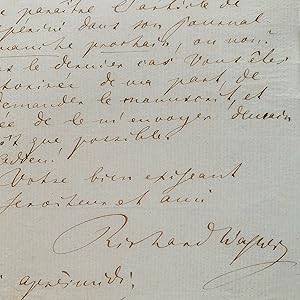 paraître l'article de
dans son journal
manche prochain, ou non;
le dernier cas Vous êtes
torisé de ma part, de
demander le manuscrit, et
ée de le m'envoyer demain
ôt que possible.
Votre bien exigeant
serviteur et ami
Richard Wagner
après midi.